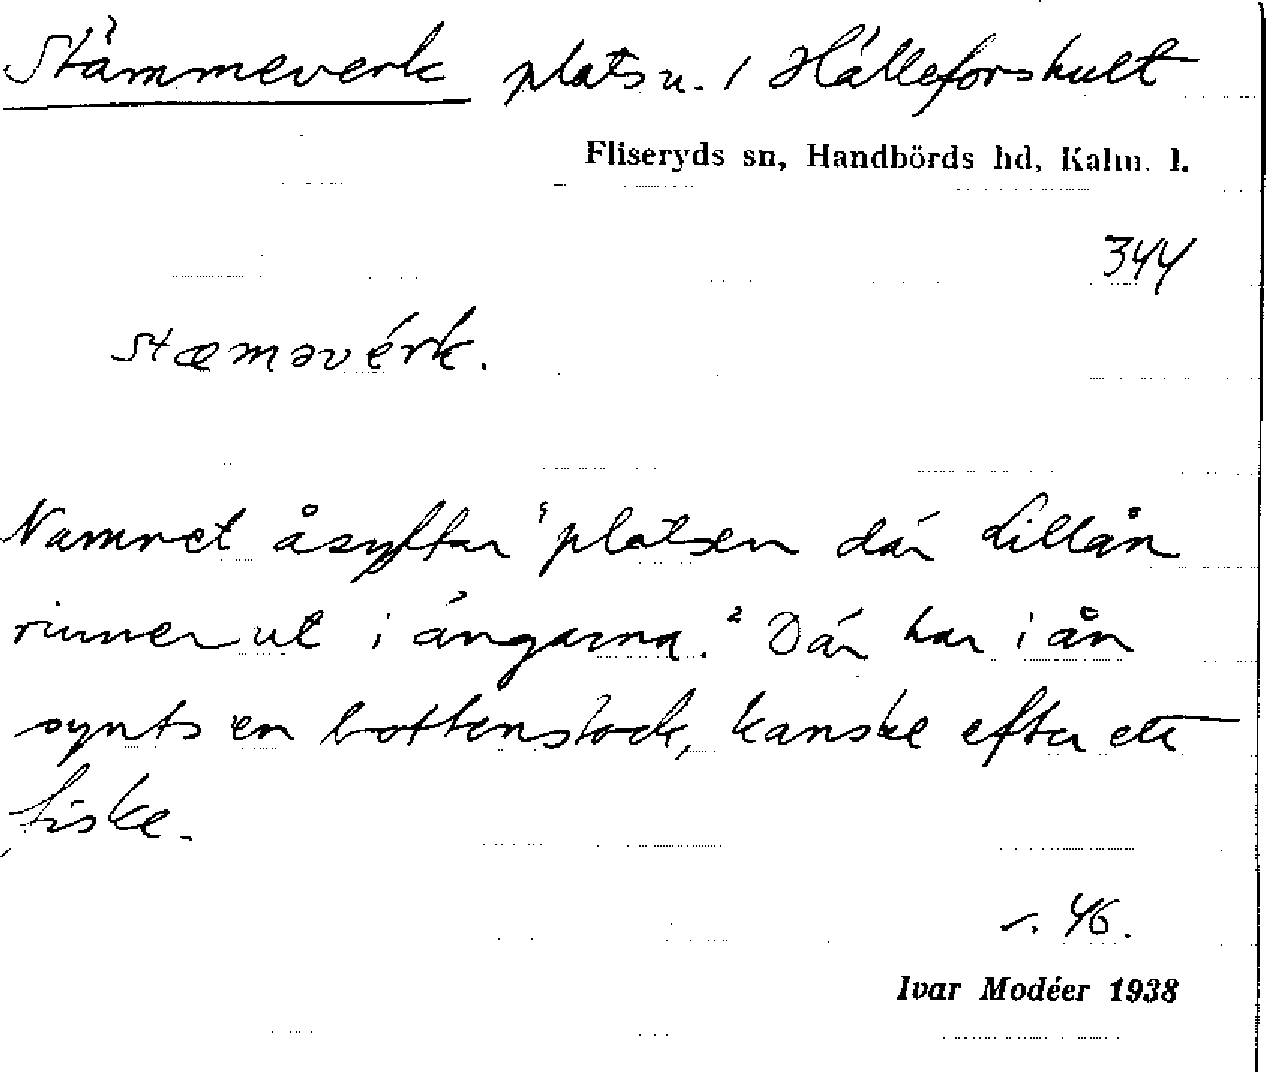 Stämmeverk plats u. / Hälleforshult
Fliseryds sn, Handbörds hd, Kalm. l.
344
stæməvérk.
Namnet åsyftar "platsen där Lillån
rinner ut i ängarna." Där har i ån
synts en bottenstock, kanske efter ett
fiske.
46.
Ivar Modéer 1938